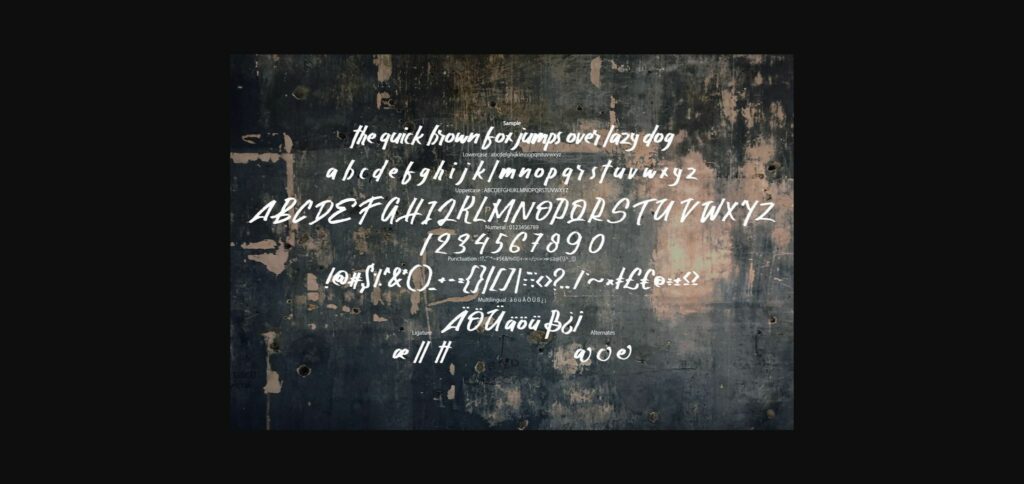 Sample
the quick brown fox jumps over lazy dog
Lowercase : abcdefghijklmnopqrstuvwxyz
a b c d e f g h i j k l m n o p q r s t u v w x y z
Uppercase : ABCDEFGHIJKLMNOPQRSTUVWXYZ
A B C D E F G H I J K L M N O P Q R S T U V W X Y Z
Numeral : 0123456789
1 2 3 4 5 6 7 8 9 0
Punctuation :
Multilingual : ä ö ü Ä Ö Ü ß ¿ ¡
ÄÖÜ äöü ß¿¡
Ligature
Alternates
æ ll tt